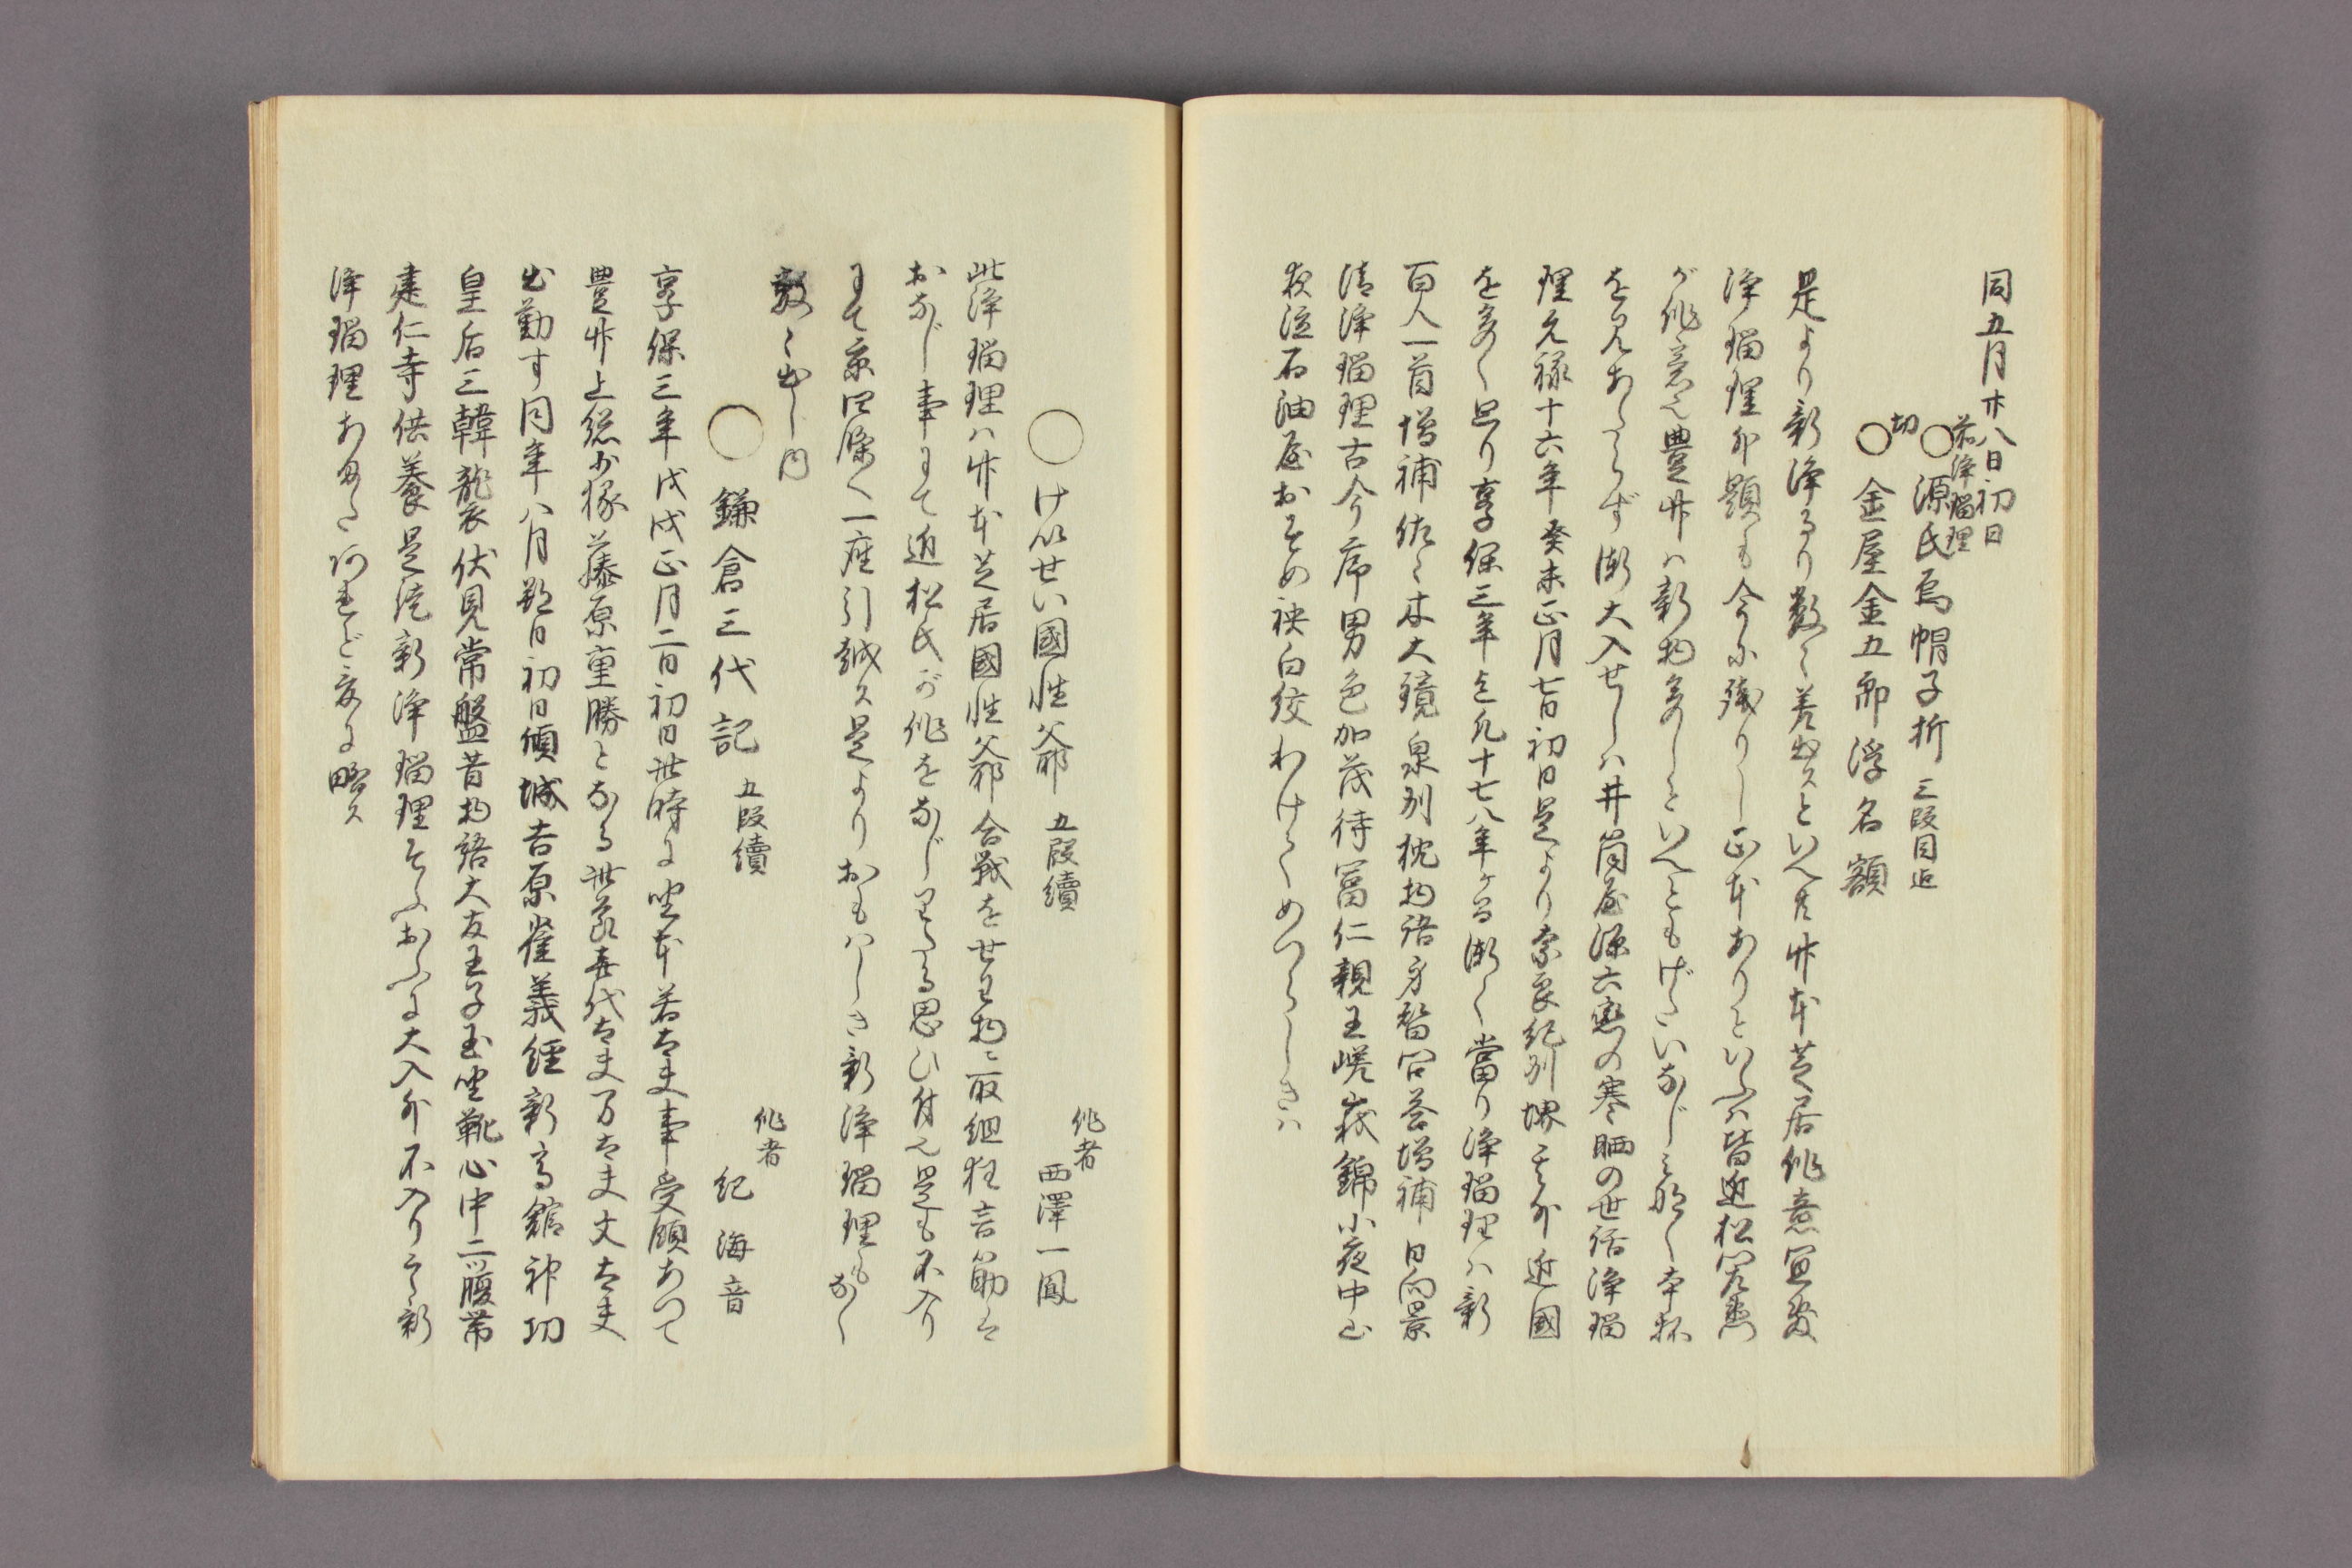 同五月廿八日初日
前浄瑠理
○源氏烏帽子折 三段目迄
切
○金屋金五郎浮名額
是より新浄るり数々差出スといへ共竹本芝居作意宜敷
浄瑠理外題も今に残りし正本ありといふハ皆近松
が作意也豊竹ハ新物多しといへとも
を見あたらず漸大入せしハ井筒屋源六恋の寒晒の世話浄瑠
理元禄十六年癸未正月七日初日是より奈良紀州堺其外近國
を多く廻り享保三年迄凡十七八年ヶ間漸々當り浄瑠理ハ新
百人一首増補佐々木大鏡泉州枕物語身替問答増補日向景
清浄瑠理古今序男色加茂侍冨仁親王嵯峨錦小夜中山
夜泣石油屋おそめ袂白絞わけてめつらしきハ
○けいせい國性爺 五段續
作者
西澤一鳳
此浄瑠理ハ竹本芝居國性爺合戦を世わ物に取組狂言筋は
おなじ事にて近松氏が作をなじりたる思ひ付也是も不入り
にて京四條へ一座引越ス是よりおもハしき新浄瑠理もなく
数々出し内
○鎌倉三代記 五段續
作者
紀海音
享保三年戊戌正月二日初日此時に座本若太夫事受領あつて
豊竹上総少掾藤原重勝となる此節喜代太夫万太夫丈太夫
出勤す同年八月朔日初日傾城吉原雀義経新高舘神功
皇后三韓襲伏見常盤昔物語大友王子玉座靴心中二ツ腹帯
建仁寺供養是迄新浄瑠理そふおふに大入外不入り之新
浄瑠理あまたあれど爰に略ス